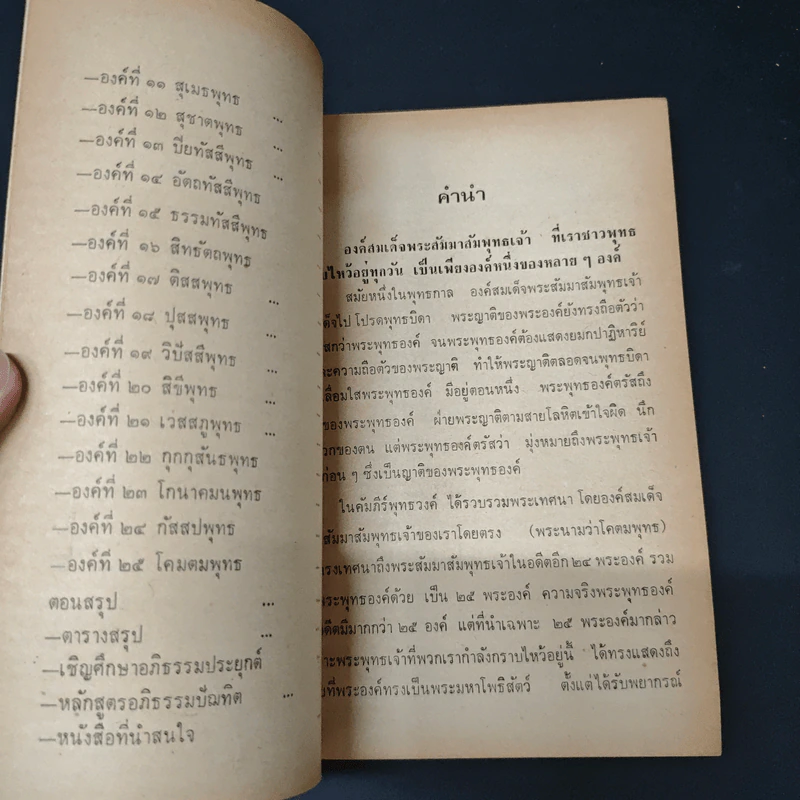 —องค์ที่ ๑๑ สุเมธพุทธ
—องค์ที่ ๑๒ สุชาตพุทธ ...
—องค์ที่ ๑๓ ปิยทัสสีพุทธ
—องค์ที่ ๑๔ อัตถทัสสีพุทธ
—องค์ที่ ๑๕ ธรรมทัสสีพุทธ
—องค์ที่ ๑๖ สิทธัตถพุทธ
—องค์ที่ ๑๗ ติสสพุทธ ...
—องค์ที่ ๑๘ ปุสสพุทธ ...
—องค์ที่ ๑๙ วิปัสสีพุทธ
—องค์ที่ ๒๐ สิขีพุทธ ...
—องค์ที่ ๒๑ เวสสภูพุทธ ...
—องค์ที่ ๒๒ กุกกุสันธพุทธ
—องค์ที่ ๒๓ โกนาคมนพุทธ
—องค์ที่ ๒๔ กัสสปพุทธ
—องค์ที่ ๒๕ โคมตมพุทธ
ตอนสรุป ...
—ตารางสรุป ...
—เชิญศึกษาอภิธรรมประยุกต์
—หลักสูตรอภิธรรมบัณฑิต ...
—หนังสือที่น่าสนใจ
คำนำ
องค์สมเด็จพระสัมมาสัมพุทธเจ้า ที่เราชาวพุทธ
ไหว้อยู่ทุกวัน เป็นเพียงองค์หนึ่งของหลาย ๆ องค์
สมัยหนึ่งในพุทธกาล องค์สมเด็จพระสัมมาสัมพุทธเจ้า
ด็จไป โปรดพุทธบิดา พระญาติของพระองค์ยังทรงถือตัวว่า
สกว่าพระพุทธองค์ จนพระพุทธองค์ต้องแสดงยมกปาฏิหาริย์
ความถือตัวของพระญาติ ทำให้พระญาติตลอดจนพุทธบิดา
ลื่อมใสพระพุทธองค์ มีอยู่ตอนหนึ่ง พระพุทธองค์ตรัสถึง
ของพระพุทธองค์ ฝ่ายพระญาติตามสายโลหิตเข้าใจผิด นึก
วกของตน แต่พระพุทธองค์ตรัสว่า มุ่งหมายถึงพระพุทธเจ้า
ก่อน ๆ ซึ่งเป็นญาติของพระพุทธองค์
ในคัมภีร์พุทธวงค์ ได้รวบรวมพระเทศนา โดยองค์สมเด็จ
สัมมาสัมพุทธเจ้าของเราโดยตรง (พระนามว่าโคตมพุทธ)
รงเทศนาถึงพระสัมมาสัมพุทธเจ้าในอดีตอีก ๒๔ พระองค์ รวม
พระพุทธองค์ด้วย เป็น ๒๕ พระองค์ ความจริงพระพุทธองค์
ดีตมีมากกว่า ๒๕ องค์ แต่ที่นำเฉพาะ ๒๕ พระองค์มากล่าว
าะพระพุทธเจ้าที่พวกเรากำลังกราบไหว้อยู่นี้ ได้ทรงแสดงถึง
ยที่พระองค์ทรงเป็นพระมหาโพธิสัตว์ ตั้งแต่ได้รับพยากรณ์